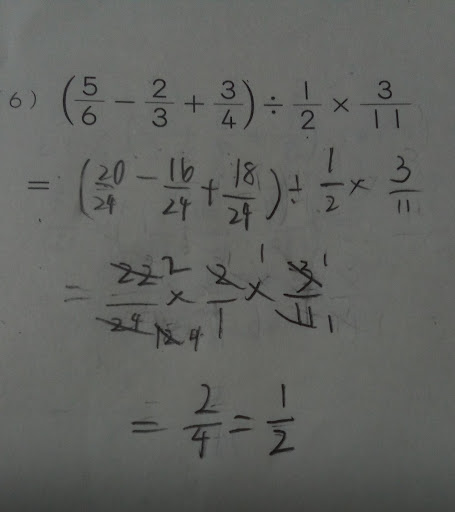 6) (5/6 - 2/3 + 3/4) ÷ 1/2 × 3/11
= (20/24 - 16/24 + 18/24) ÷ 1/2 × 3/11
= 22 2/24 12 4 × 2 1/1 × 3 1/11 1
= 2/4 = 1/2